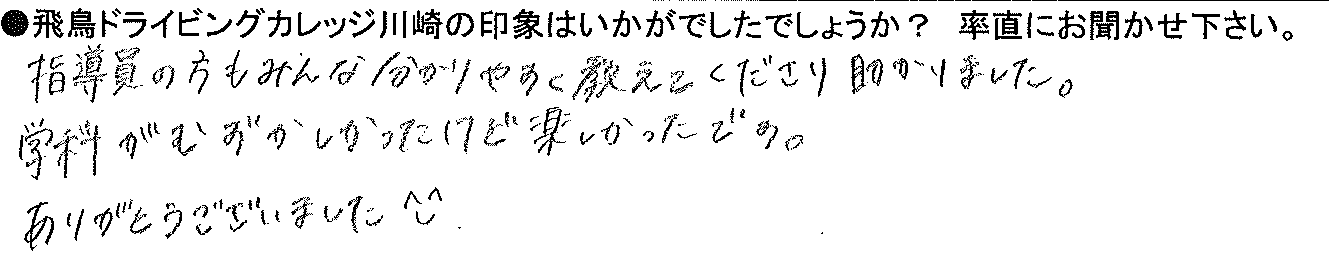 ●飛鳥ドライビングカレッジ川崎の印象はいかがでしたでしょうか？　率直にお聞かせ下さい。
指導員の方もみんな分かりやすく教えてくださり助かりました。
学科がむずかしかったけど楽しかったです。
ありがとうございました^^